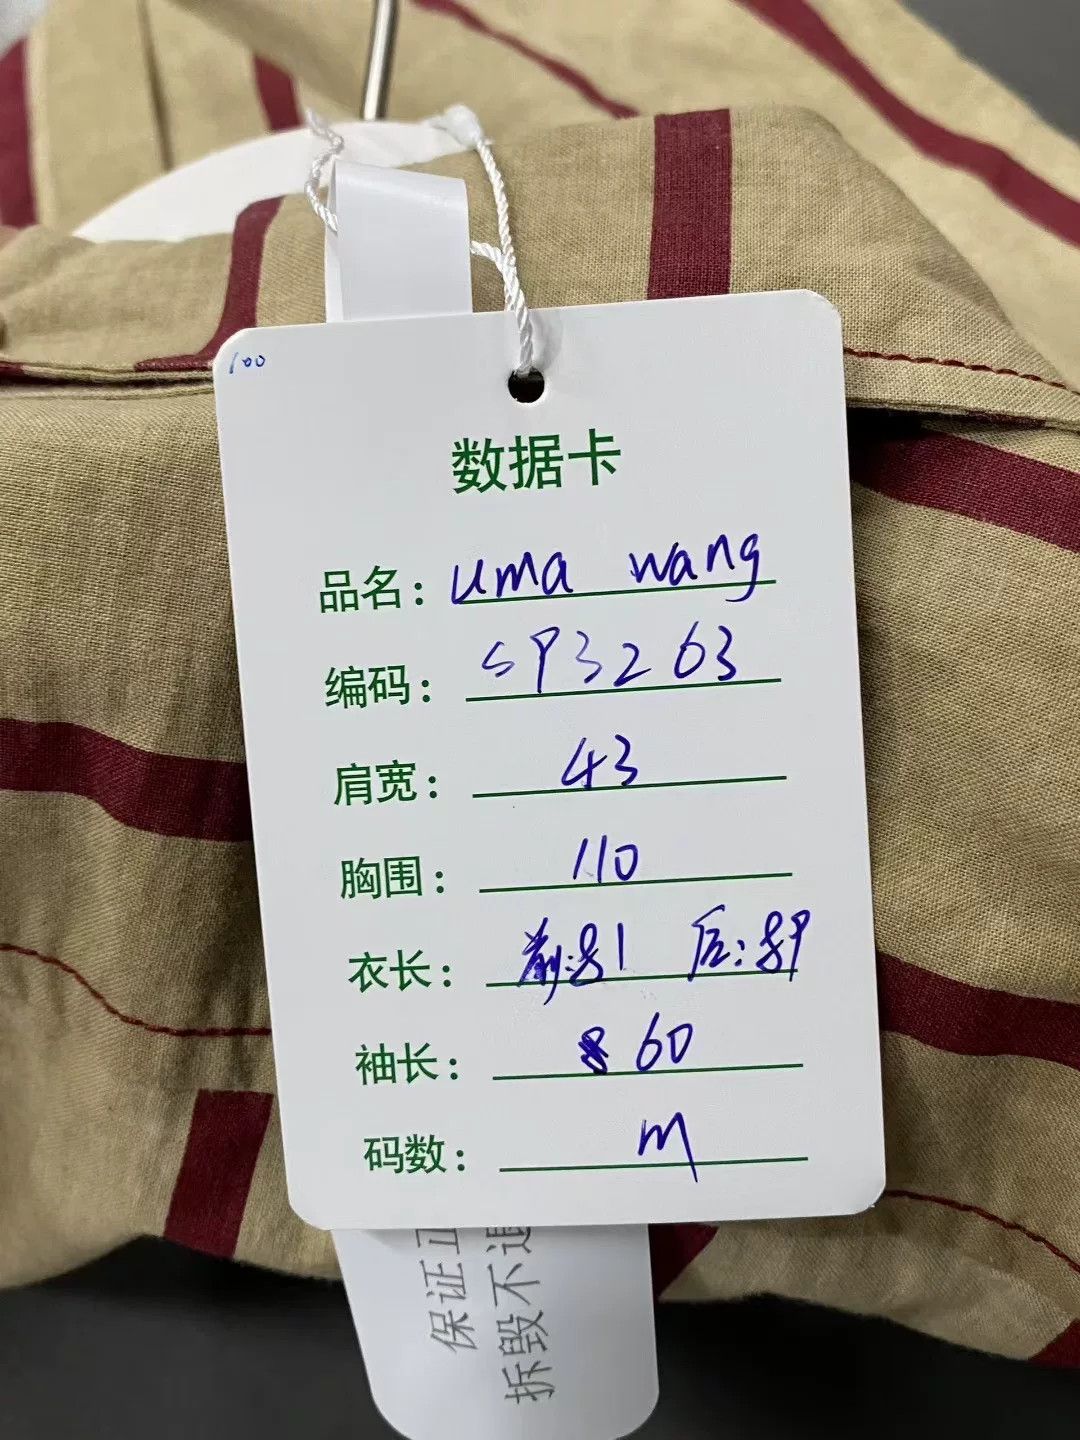 100
数据卡
品名: uma wang
编码: SP3263
肩宽: 43
胸围: 110
衣长: 前:81 后:89
袖长: 60
码数: M
保证正
拆毁不退